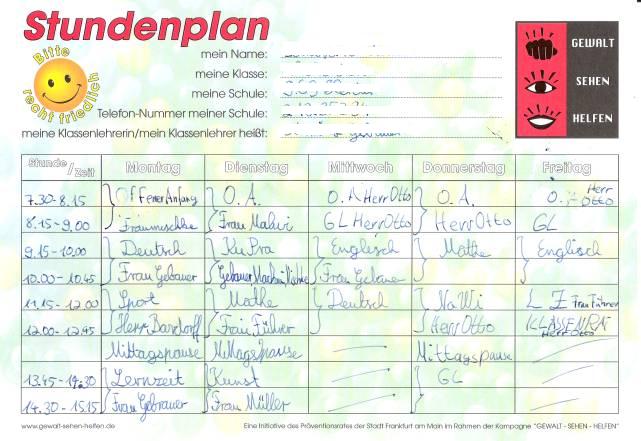 Stundenplan
Bitte recht friedlich
mein Name:
meine Klasse:
meine Schule:
Telefon-Nummer meiner Schule:
meine Klassenlehrerin/mein Klassenlehrer heißt: Gebauer
GEWALT
SEHEN
HELFEN
Stunde/Zeit Montag Dienstag Mittwoch Donnerstag Freitag
7.30-8.15 Offener Anfang O.A. O.A Herr Otto O.A. O. Herr Otto
8.15-9.00 Frau GL Herr Otto Herr Otto GL
9.15-10.00 Deutsch KuPra Englisch Mathe Englisch
10.00-10.45 Frau Gebauer Gebauer Frau Gebauer
11.15-12.00 Sport Mathe Deutsch NaWi LZ Frau
12.00-12.45 Herr Frau Führer Herr Otto KLASSENRAT Herr Otto
Mittagspause Mittagspause Mittagspause
13.45-14.30 Lernzeit Kunst GL
14.30-15.15 Frau Gebrauer Frau Müller
www.gewalt-sehen-helfen.de Eine Initiative des Präventionsrates der Stadt Frankfurt am Main im Rahmen der Kampagne "GEWALT - SEHEN - HELFEN"